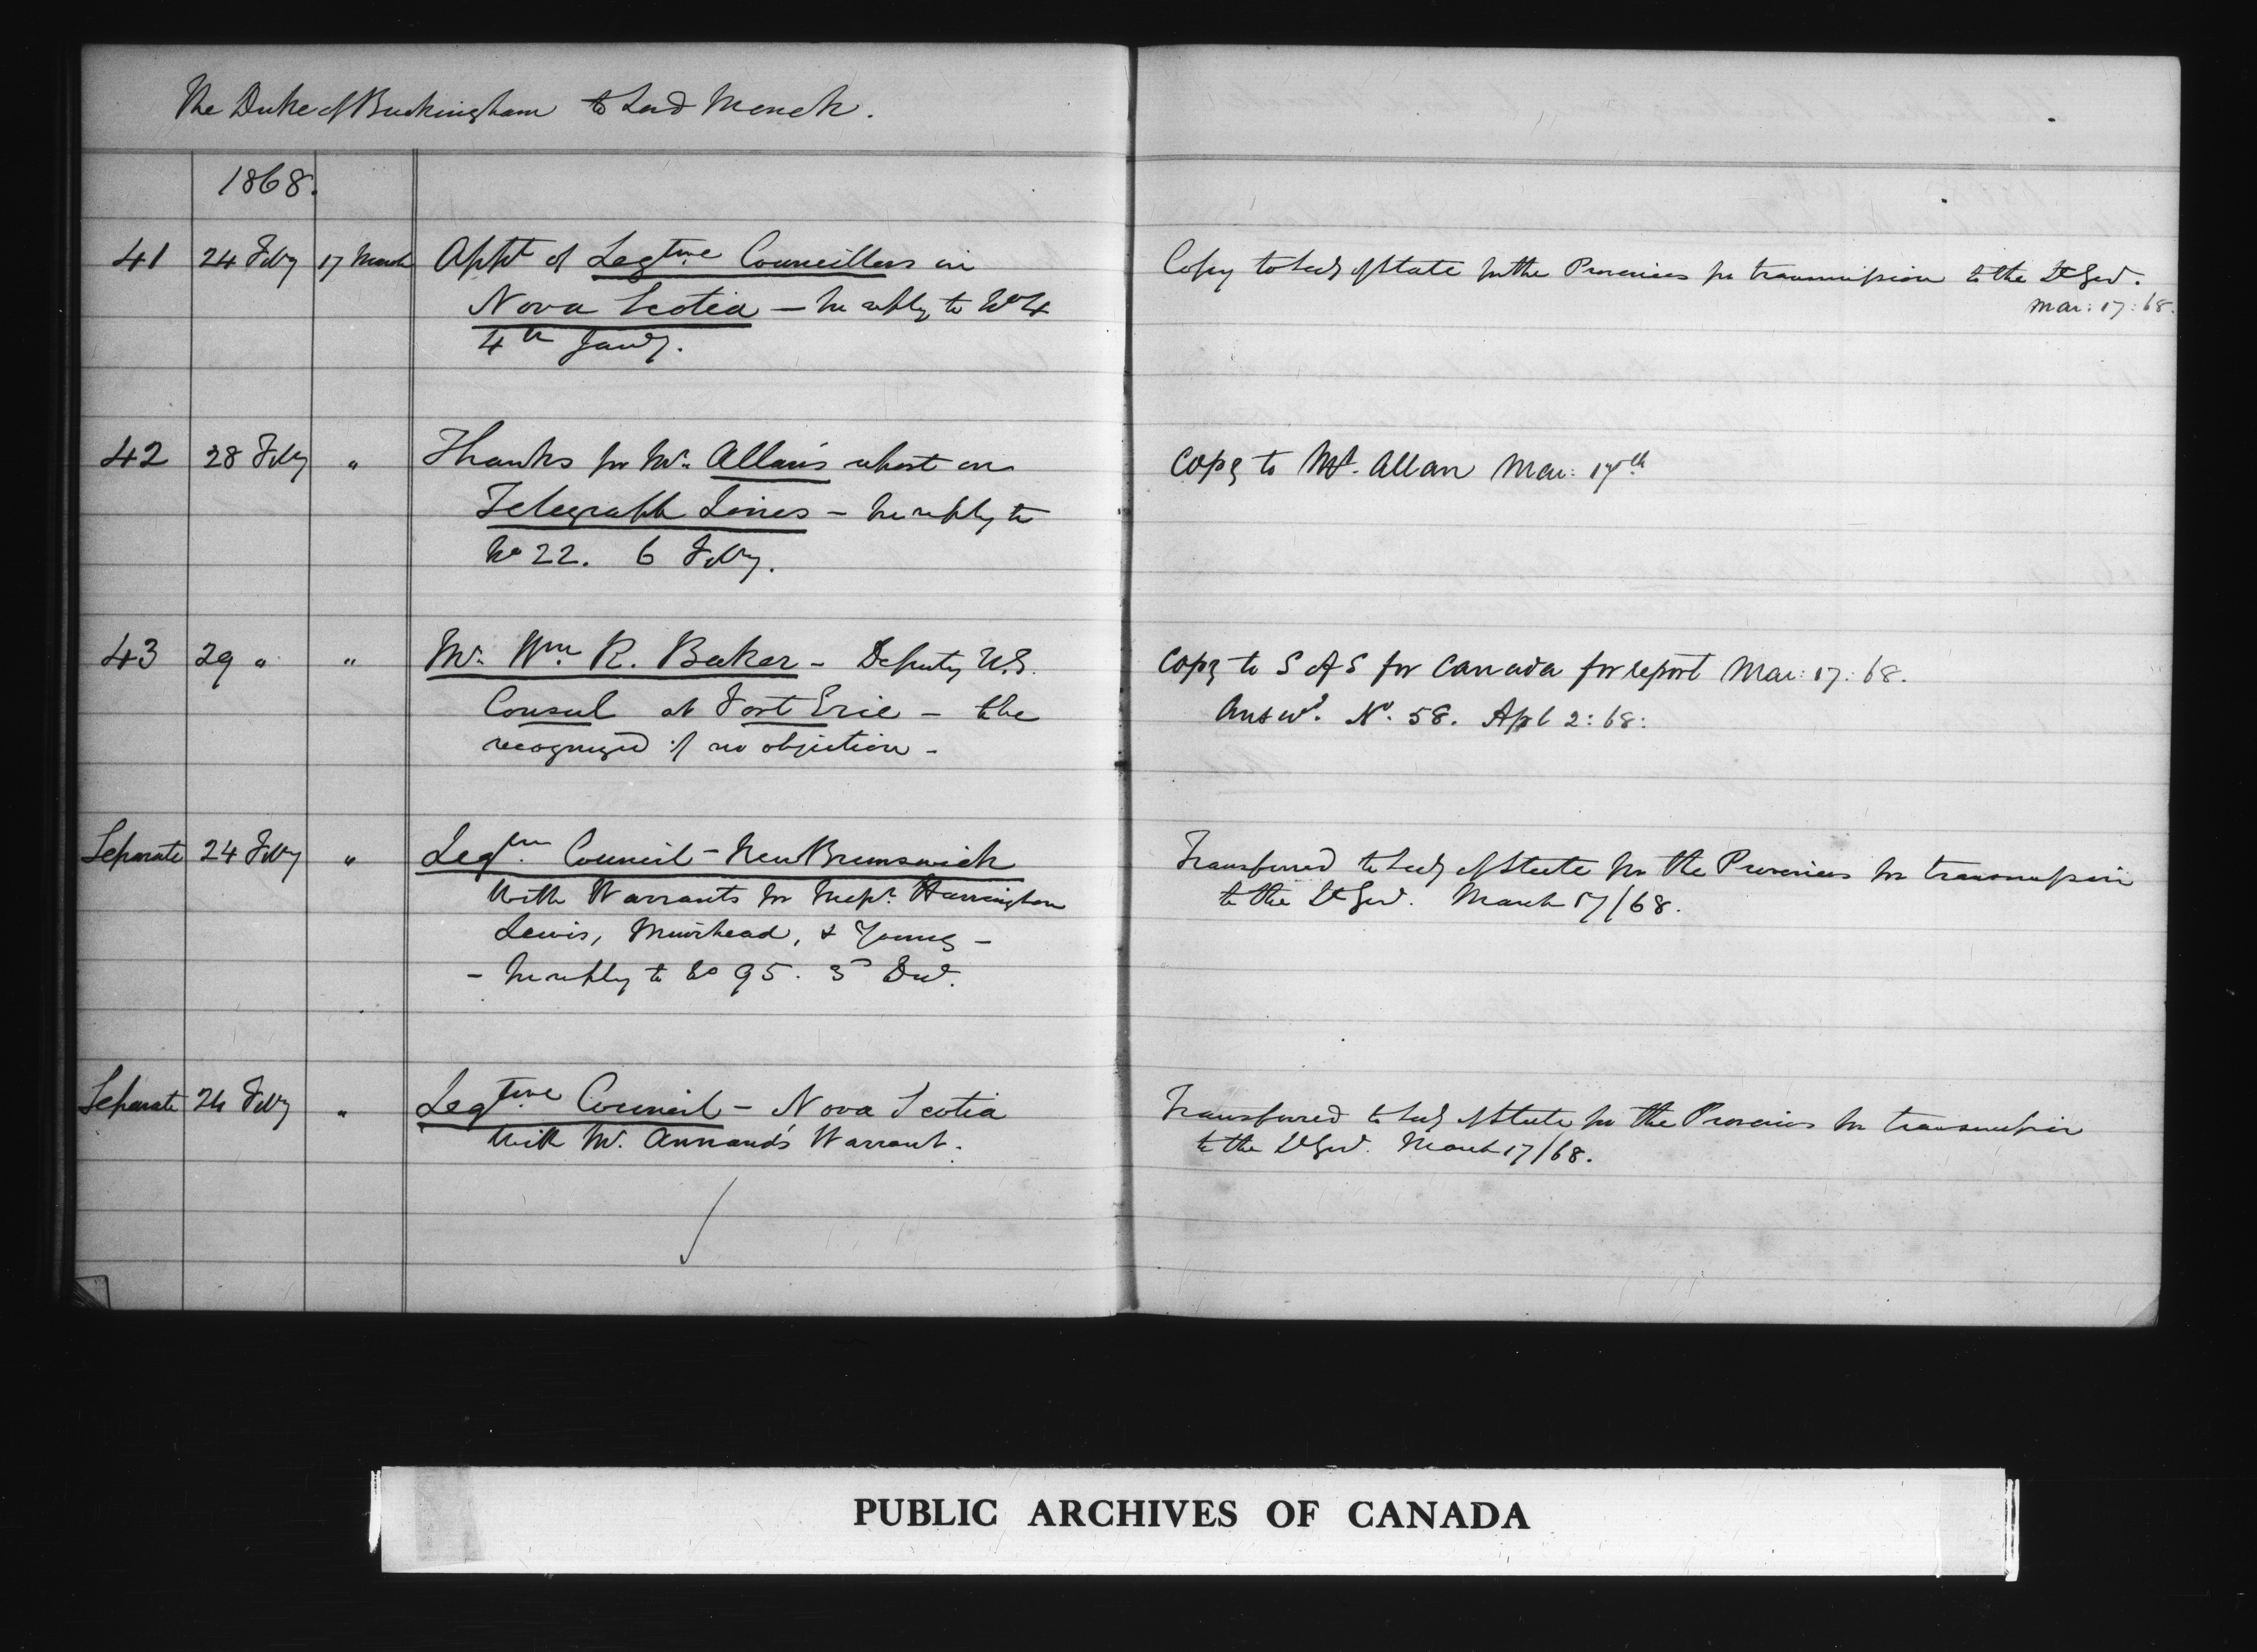 The Duke of Buckingham to Lord Monck.
1868.
41 24 Feby 17 March Appt of Legtive Councillors in
Nova Scotia – In reply to No 4
4th Jany.
Copy to Secy of State for the Provinces for transmission to the Lt Govr.
Mar: 17: 68.
42 28 Feby " Thanks for Mr. Allan's report on
Telegraph Lines – In reply to
No 22. 6 Feby.
Copy to Mr. Allan Mar: 17th
43 29 " " Mr. Wm. R. Baker – Deputy U.S.
Consul at Fort Erie – To be
recognized if no objection –
Copy to S of S for Canada for report Mar: 17: 68.
Answd. No. 58. Apl 2: 68:
Separate 24 Feby " Legtive Council – New Brunswick
With Warrants for Messrs. Harrington
Lewis, Muirhead, & Young –
– In reply to No 95. 3d Decr.
Transferred to Secy of State for the Provinces for transmission
to the Lt Govr. March 17/68.
Separate 24 Feby " Legtive Council – Nova Scotia
With Mr. Annand's Warrant.
Transferred to Secy of State for the Provinces for transmission
to the Lt Govr. March 17/68.
PUBLIC ARCHIVES OF CANADA